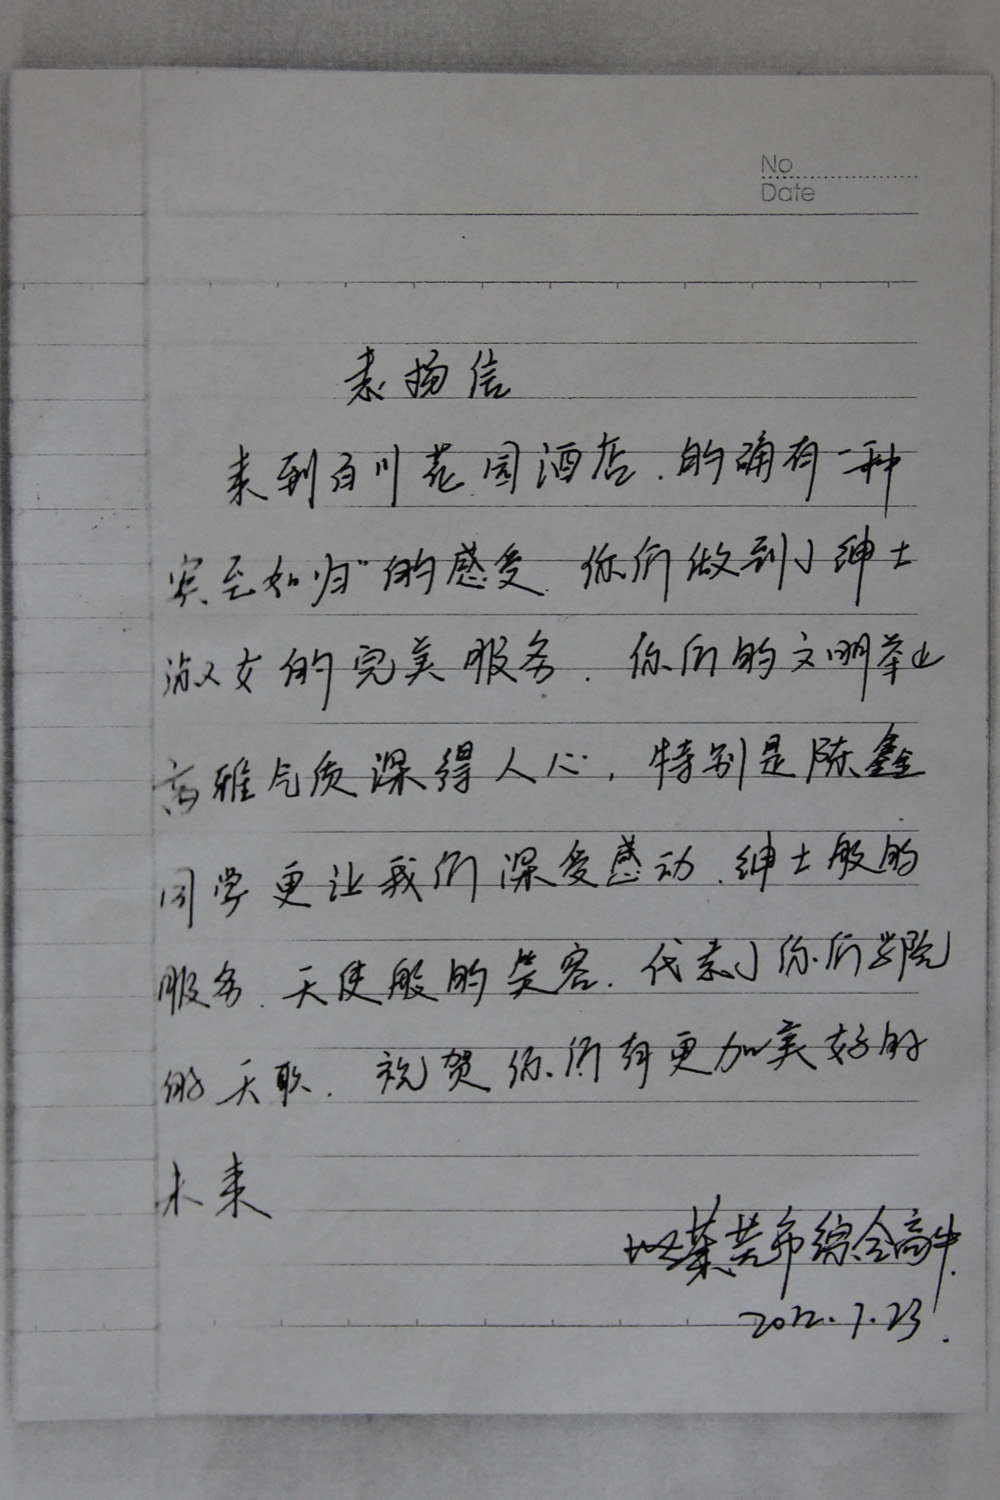 No
Date
表扬信
来到百川花园酒店,的确有一种
宾至如归"的感受,你们做到了绅士
淑女的完美服务,你们的文明举止
高雅气质深得人心,特别是陈鑫
同学更让我们深受感动,绅士般的
服务,天使般的笑容,代表了你们学院
的天职,祝贺你们有更加美好的
未来
莱芜市综合高中
2012.7.23.